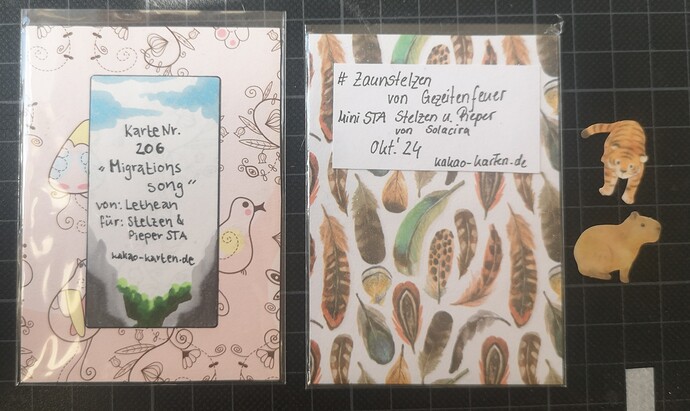 Karte Nr.
206
"Migrations
song"
von: Lethean
für: Stelzen &
Pieper STA
kakao-karten.de
# Zaunstelzen
von Gezeitenfeuer
Mini STA Stelzen u. Pieper
von Solacira
Okt.' 24
kakao-karten.de